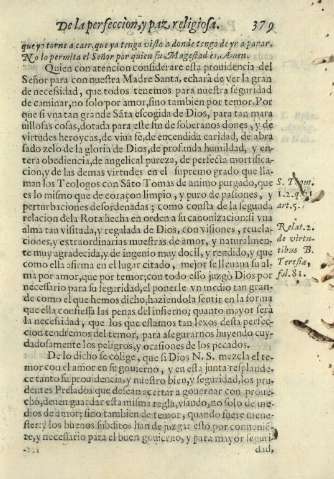 De la perfeccion, y paz religiosa. 379
que ya torne a caer, que ya tenga visto a donde tengo de yr a parar.
No lo permita el Señor por quien su Magestad es, Amen.
Quien con atencion considerare esta prouidencia del
Señor para con nuestra Madre Santa, echará de ver la gran
de necesidad, que todos tenemos para nuestra seguridad
de caminar, no solo por amor, sino tambien por temor. Por
que si vna tan grande Sãta escogida de Dios, para tan mara
uillosas cosas, dotada para este fin de soberanos dones, y de
virtudes heroycas, de viua fè, de encendida caridad, de abra
sado zelo de la gloria de Dios, de profunda humildad, y en-
tera obediencia, de angelical pureza, de perfecta mortifica-
cion, y de las demas virtudes en el supremo grado que lla-
man los Teologos con Sãto Tomas de animo purgado, que
es lo mismo que de coraçon limpio, y puro de pasiones, y
perturbaciones desordenadas (como consta de la segunda
relacion de la Rota hecha en orden a su canonizacion: si vna
alma tan visitada, y regalada de Dios, con visiones, reuela-
ciones, y extraordinarias muestras de amor, y naturalmen-
te muy agradecida, y de ingenio muy docil, y rendido, y que
como ella afirma en el lugar citado, mejor se lleuaua su al-
ma por amor, que por temor; con todo esso juzgò Dios por
necessario para su seguridad, el ponerle vn medio tan gran-
de como el que hemos dicho, haziendola sentir en la forma
que ella confiessa las penas del infierno; quanto mayor serà
la necesidad, que los que estamos tan lexos desta perfec-
cion tendremos del temor, para asegurarnos huyendo cuy-
dadosamente los peligros, y ocasiones de los pecados.
De lo dicho se colige, que si Dios N. S. mezcla el te-
mor con el amor en su gouierno, y en esta junta resplande-
ce tanto su prouidencia, y nuestro bien, y seguridad, los pru
dentes Prelados que desean acertar a gouernar con proue-
cho, deuen guardar esta misma regla, viando, no solo de me-
dios de amor; sino tambien de temor, quando fuere menes-
ter: y los buenos subditos han de juzgar esto por conuenie
te, y necessario para el buen gouierno, y para mayor seguri-
dad,
S. Thom.
1.2.q.
art.5.
Relat.2.
de virtu-
tibus B.
Teresia,
fol.81.